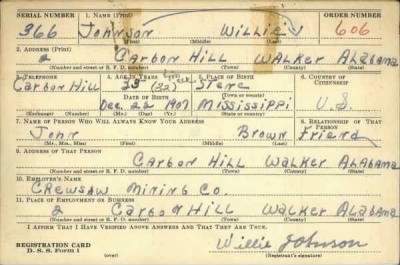 SERIAL NUMBER 1. NAME (Print) ORDER NUMBER
366 Johnson Willie 606
(First) (Middle) (Last)
2. ADDRESS (Print)
2 Carbon Hill Walker Alabama
(Number and street or R. F. D. number) (Town) (County) (State)
3. TELEPHONE 4. AGE IN YEARS 5. PLACE OF BIRTH 6. COUNTRY OF CITIZENSHIP
Carbon Hill 33 (32)
DATE OF BIRTH (Town or county)
Dec. 22 1907 Mississippi U.S.
(Exchange) (Number) (Mo.) (Day) (Yr.) (State or country)
7. NAME OF PERSON WHO WILL ALWAYS KNOW YOUR ADDRESS 8. RELATIONSHIP OF THAT PERSON
John Brown Friend
(Mr., Mrs., Miss) (First) (Middle) (Last)
9. ADDRESS OF THAT PERSON
Carbon Hill Walker Alabama
(Number and street or R. F. D. number) (Town) (County) (State)
10. EMPLOYER'S NAME
Crewsaw Mining Co.
11. PLACE OF EMPLOYMENT OR BUSINESS
2 Carbon Hill Walker Alabama
(Number and street or R. F. D. number) (Town) (County) (State)
I AFFIRM THAT I HAVE VERIFIED ABOVE ANSWERS AND THAT THEY ARE TRUE.
Willie Johnson
REGISTRATION CARD
D. S. S. Form 1 (over) (Registrant's signature)